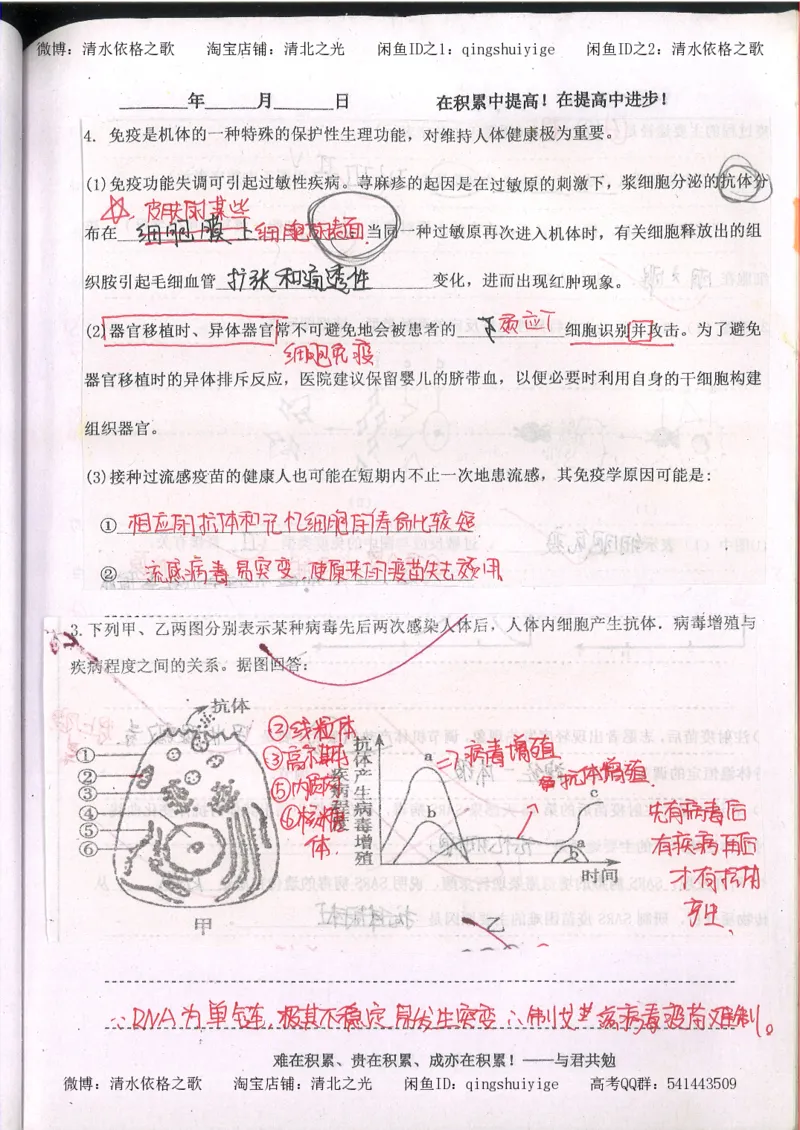 微博：清水依格之歌 淘宝店铺：清北之光 闲鱼ID之1：qingshuiyige 闲鱼ID之2：清水依格之歌
年 月 日 在积累中提高！在提高中进步！
4. 免疫是机体的一种特殊的保护性生理功能，对维持人体健康极为重要。
(1)免疫功能失调可引起过敏性疾病。荨麻疹的起因是在过敏原的刺激下，浆细胞分泌的抗体分
皮肤的某些
布在 细胞膜上 细胞的表面 当同一种过敏原再次进入机体时，有关细胞释放出的组
织胺引起毛细血管 扩张和通透性 变化，进而出现红肿现象。
(2)器官移植时、异体器官常不可避免地会被患者的 效应T 细胞识别并攻击。为了避免
细胞免疫
器官移植时的异体排斥反应，医院建议保留婴儿的脐带血，以便必要时利用自身的干细胞构建
组织器官。
(3)接种过流感疫苗的健康人也可能在短期内不止一次地患流感，其免疫学原因可能是：
① 相应的抗体和记忆细胞的寿命比较短
② 流感病毒易突变，使原来的疫苗失去效用
3.下列甲、乙两图分别表示某种病毒先后两次感染人体后，人体内细胞产生抗体．病毒增殖与
疾病程度之间的关系。据图回答：
抗体
①
②
③
④
⑤
⑥
甲
②线粒体
③高尔基体
⑤内质网
⑥核糖体
抗体产生病毒增殖
疾病程度
a
b
c
a
b
时间
乙
⇒病毒增殖
抗体增殖
先有病毒后
有疾病再后
才有抗体
产生、
∵DNA为单链，极其不稳定易发生突变∴制艾兹病病毒疫苗难制。
难在积累、贵在积累、成亦在积累！——与君共勉
微博：清水依格之歌 淘宝店铺：清北之光 闲鱼ID：qingshuiyige 高考QQ群：541443509